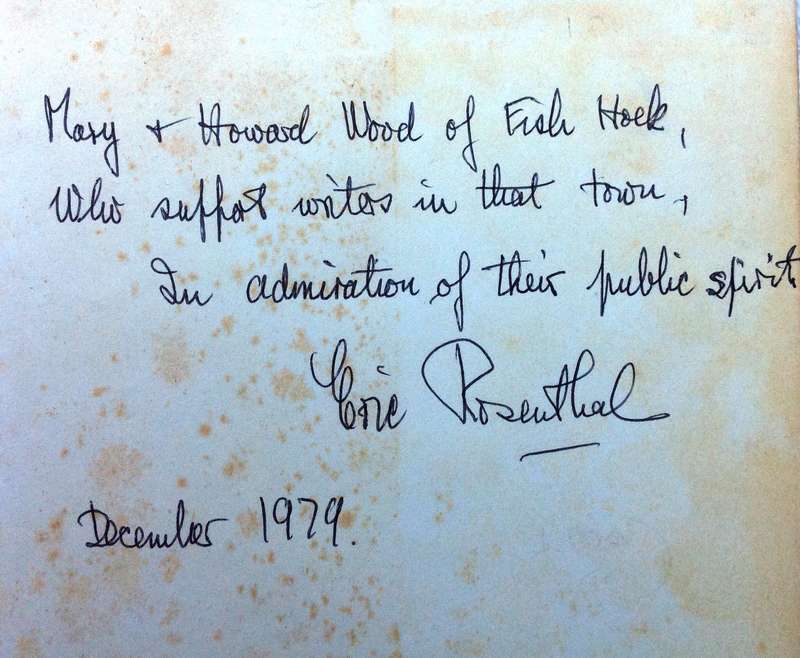 Mary + Howard Wood of Fish Hoek,
Who support writers in that town,
In admiration of their public spirit
Eric Rosenthal
December 1979.